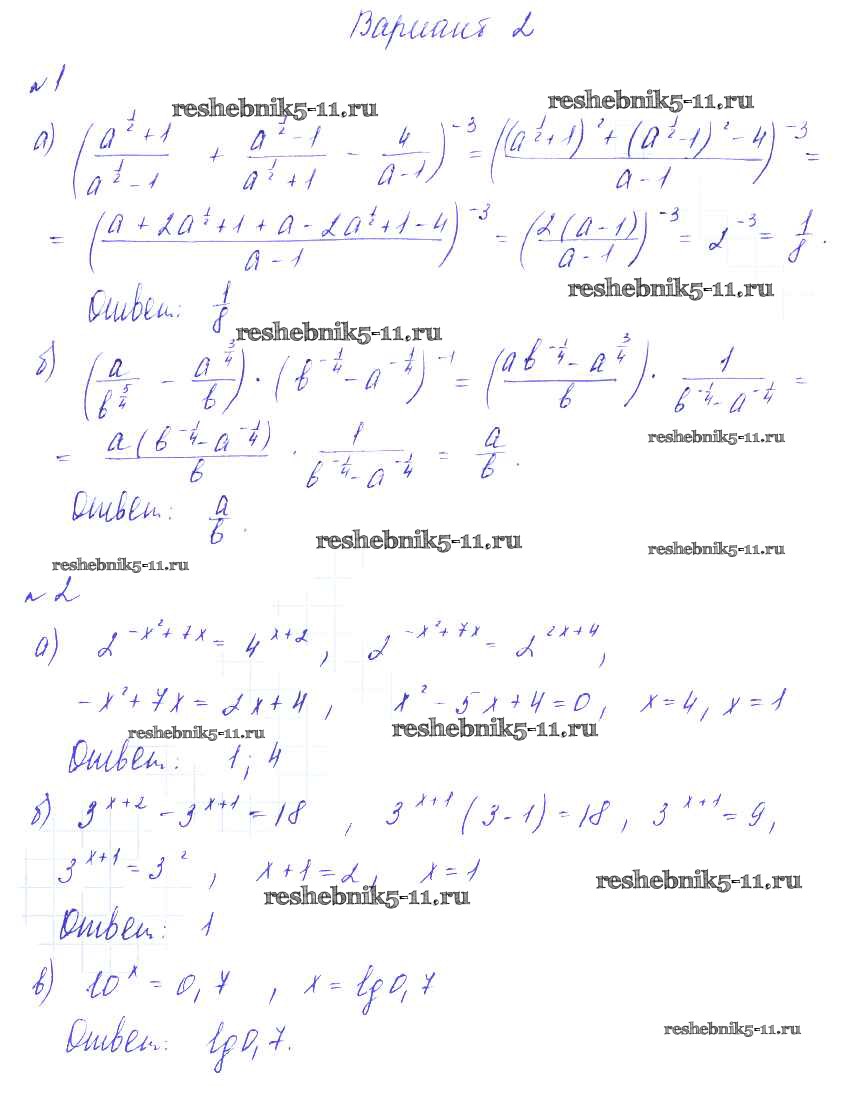 Вариант 2
№1
reshebnik5-11.ru reshebnik5-11.ru
а) ((a^(1/2)+1)/(a^(1/2)-1) + (a^(1/2)-1)/(a^(1/2)+1) - 4/(a-1))^(-3) = (((a^(1/2)+1)^2+(a^(1/2)-1)^2-4)/(a-1))^(-3) =
= ((a+2a^(1/2)+1+a-2a^(1/2)+1-4)/(a-1))^(-3) = (2(a-1)/(a-1))^(-3) = 2^(-3) = 1/8.
reshebnik5-11.ru
Ответ: 1/8
reshebnik5-11.ru
б) (a/b^(5/4) - a^(3/4)/b)·(b^(-1/4)-a^(-1/4))^(-1) = ((ab^(-1/4)-a^(3/4))/b)·1/(b^(-1/4)-a^(-1/4)) =
reshebnik5-11.ru
= a(b^(-1/4)-a^(-1/4))/b · 1/(b^(-1/4)-a^(-1/4)) = a/b.
Ответ: a/b.
reshebnik5-11.ru reshebnik5-11.ru
reshebnik5-11.ru
№2
а) 2^(-x^2+7x) = 4^(x+2), 2^(-x^2+7x) = 2^(2x+4),
-x^2+7x=2x+4, x^2-5x+4=0, x=4, x=1
reshebnik5-11.ru reshebnik5-11.ru
Ответ: 1; 4
б) 3^(x+2) - 3^(x+1) = 18, 3^(x+1)(3-1)=18, 3^(x+1)=9,
3^(x+1)=3^2, x+1=2, x=1
reshebnik5-11.ru reshebnik5-11.ru
Ответ: 1
в) 10^x = 0,7, x = lg0,7
reshebnik5-11.ru
Ответ: lg0,7.